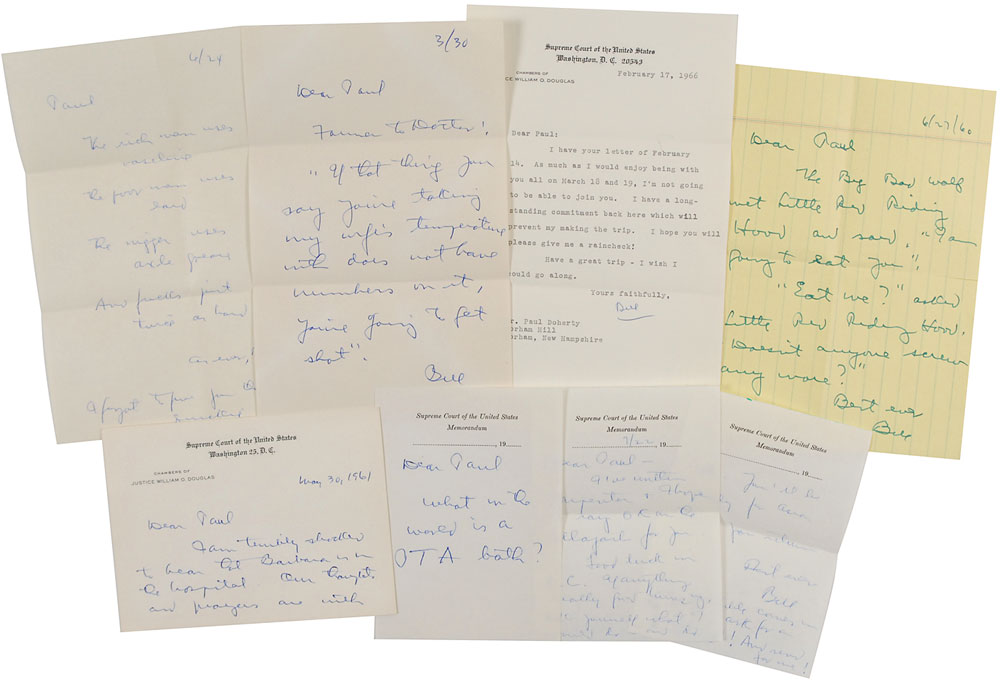 6/24
Paul
The rich man uses
vaseline
The poor man uses
lard
The nigger uses
axle grease
And fucks just
twice as hard
as ever,
3/30
Dear Paul
Farmer to Doctor!
"If that thing you
say you're taking
my wife's temperature
with does not have
numbers on it,
you're going to get
shot".
Bill
Supreme Court of the United States
Washington, D. C. 20543
CHAMBERS OF
CE WILLIAM O. DOUGLAS
February 17, 1966
Dear Paul:
I have your letter of February
14. As much as I would enjoy being with
you all on March 18 and 19, I'm not going
to be able to join you. I have a long-
standing commitment back here which will
prevent my making the trip. I hope you will
please give me a raincheck!
Have a great trip - I wish I
ould go along.
Yours faithfully,
Bill
r. Paul Doherty
orham Hill
orham, New Hampshire
6/27/60
Dear Paul
The Big Bad Wolf
met Little Red Riding
Hood and said, "I am
going to eat you".
"Eat me?" asked
Little Red Riding Hood.
Doesn't anyone screw
any more?"
Best ever
Bill
Supreme Court of the United States
Washington 25, D. C.
CHAMBERS OF
JUSTICE WILLIAM O. DOUGLAS
May 30, 1961
Dear Paul
I am terribly shocked
to hear that Barbara is in
the hospital. Our thoughts
and prayers are with
Supreme Court of the United States
Memorandum
, 19
Dear Paul
What in the
world is a
OTA bath?
Supreme Court of the United States
Memorandum
7/22, 19
Dear Paul -
I've written
Superior & I hope
OK on the
for you
Good luck in
C. If anything
really good
yourself what
do - and
Supreme Court of the United States
Memorandum
, 19
for
for
Best ever
Bill
comes in
ask for a
! And send
for me!